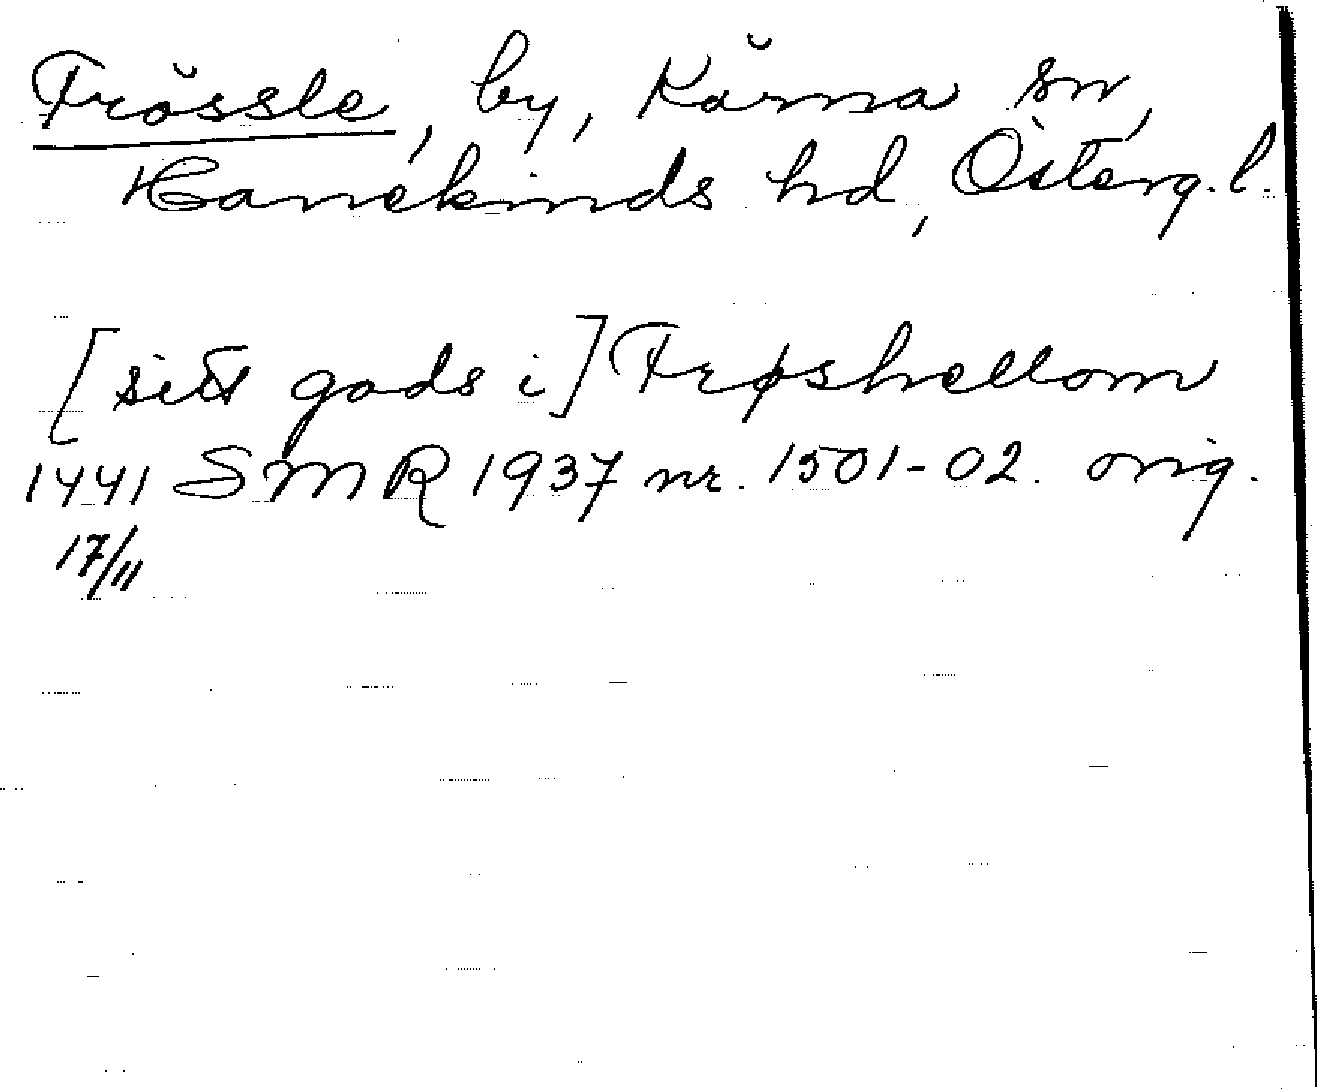 Frössle, by, Kärna sn,
Hanekinds hd, Österg. l.
[sitt gods i] Frøshellom
1441 SMR 1937 nr. 1501-02. orig.
17/11